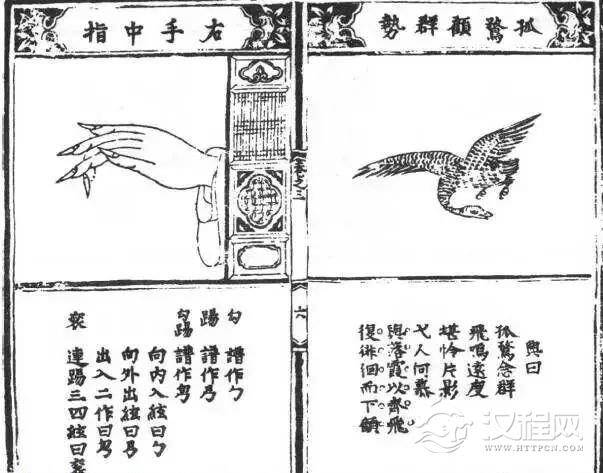 孤鶩顧群勢
興曰
孤鶩念群
飛鳴遠度
堪怜片影
弋人何慕
與落霞以齊飛
復徘徊而下顧
六
右手中指
勾 譜作勹
踢 譜作
勾踢 譜作
向内入絃曰勹
向外出絃曰
出入二作曰
連踢三四絃曰
汉程网
WWW.HTTPCN.COM